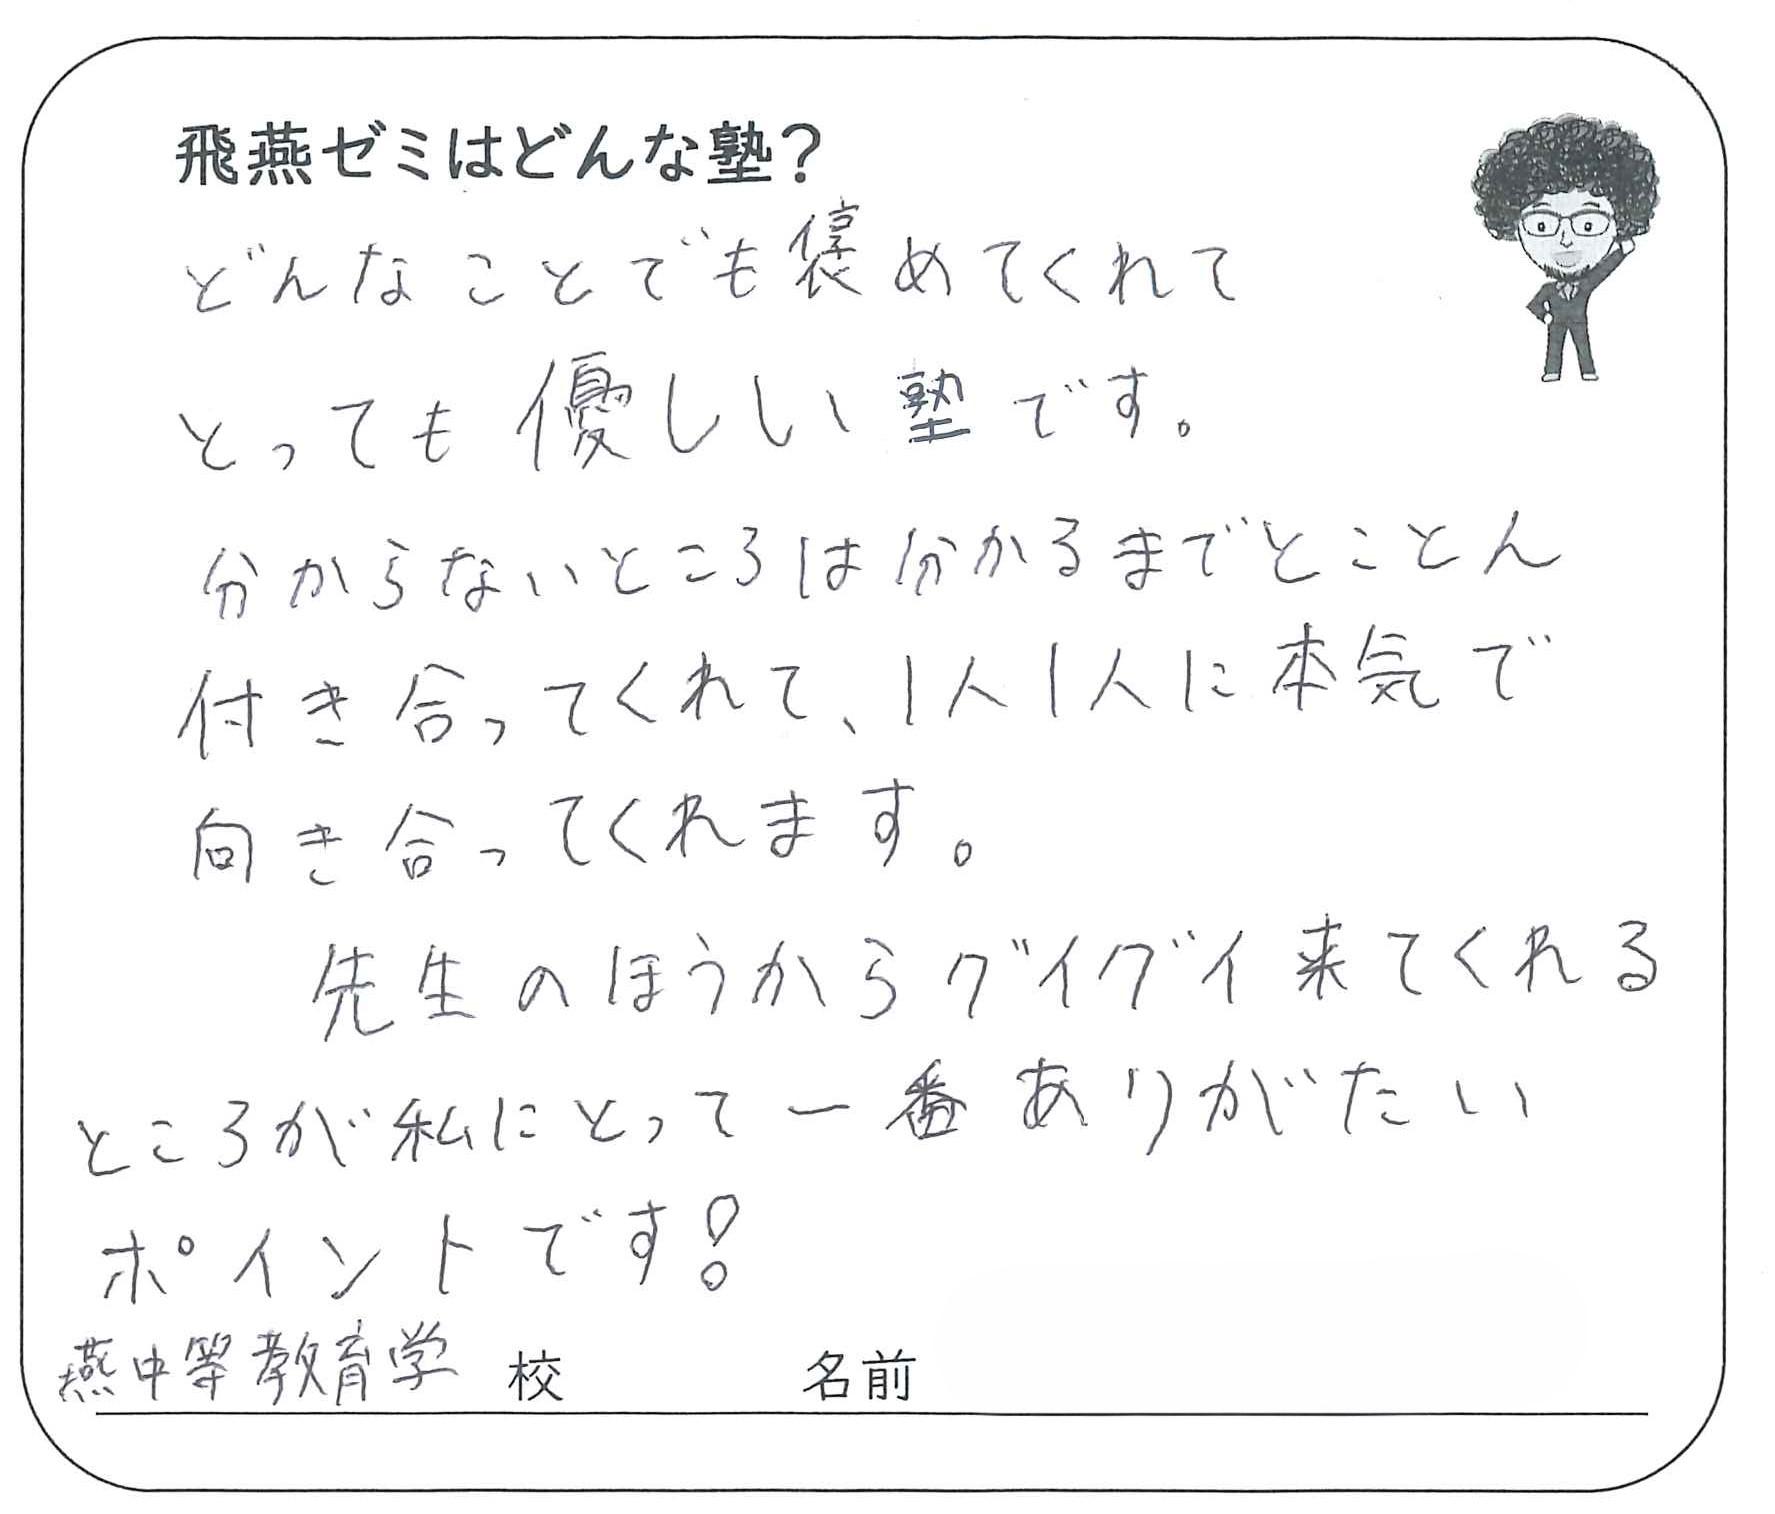 飛燕ゼミはどんな塾?
どんなことでも褒めてくれて
とっても優しい塾です。
分からないところは分かるまでとことん
付き合ってくれて、1人1人に本気で
向き合ってくれます。
先生のほうからグイグイ来てくれる
ところが私にとって一番ありがたい
ポイントです!
燕中等教育学校 名前